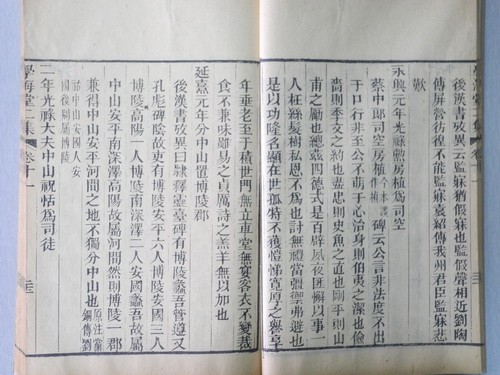 後漢書攷異云監寐猶假寐也監假聲相近劉陶
傳屏營彷徨不能監寐袁紹傳我州君臣監寐悲
歎
永興元年光祿勳房植為司空
蔡中郎司空房植今本譌作楨碑云公言非法度不出
于口行非至公不萌于心治身則伯夷之潔也儉
嗇則季文之約也盡忠則史魚之直也剛平則山
甫之勵也總茲四德式是百辟夙夜匪懈以事一
人枉絲髮樹私恩不為也討無禮當彊禦弗避也
是以功隆名顯在世孤特不獲愷悌寬厚之譽享
年垂老至于積世門無立車堂無宴客衣不變裁
食不兼味雖易之貞厲詩之羔羊無以加也
延熹元年分中山置博陵郡
後漢書攷異曰隸釋靈臺碑有博陵蠡吾管遵又
孔彪碑陰故吏有博陵安平六人博陵安國三人
博陵高陽一人博陵南深澤二人安國蠡吾故屬
中山安平南深澤高陽故屬河間然則博陵一郡
兼得中山安平河間之地不獨分中山也原注黨錮傳劉
祐中山安國人安國後別屬博陵
二年光祿大夫中山祝恬為司徒
學海堂二集 卷十一